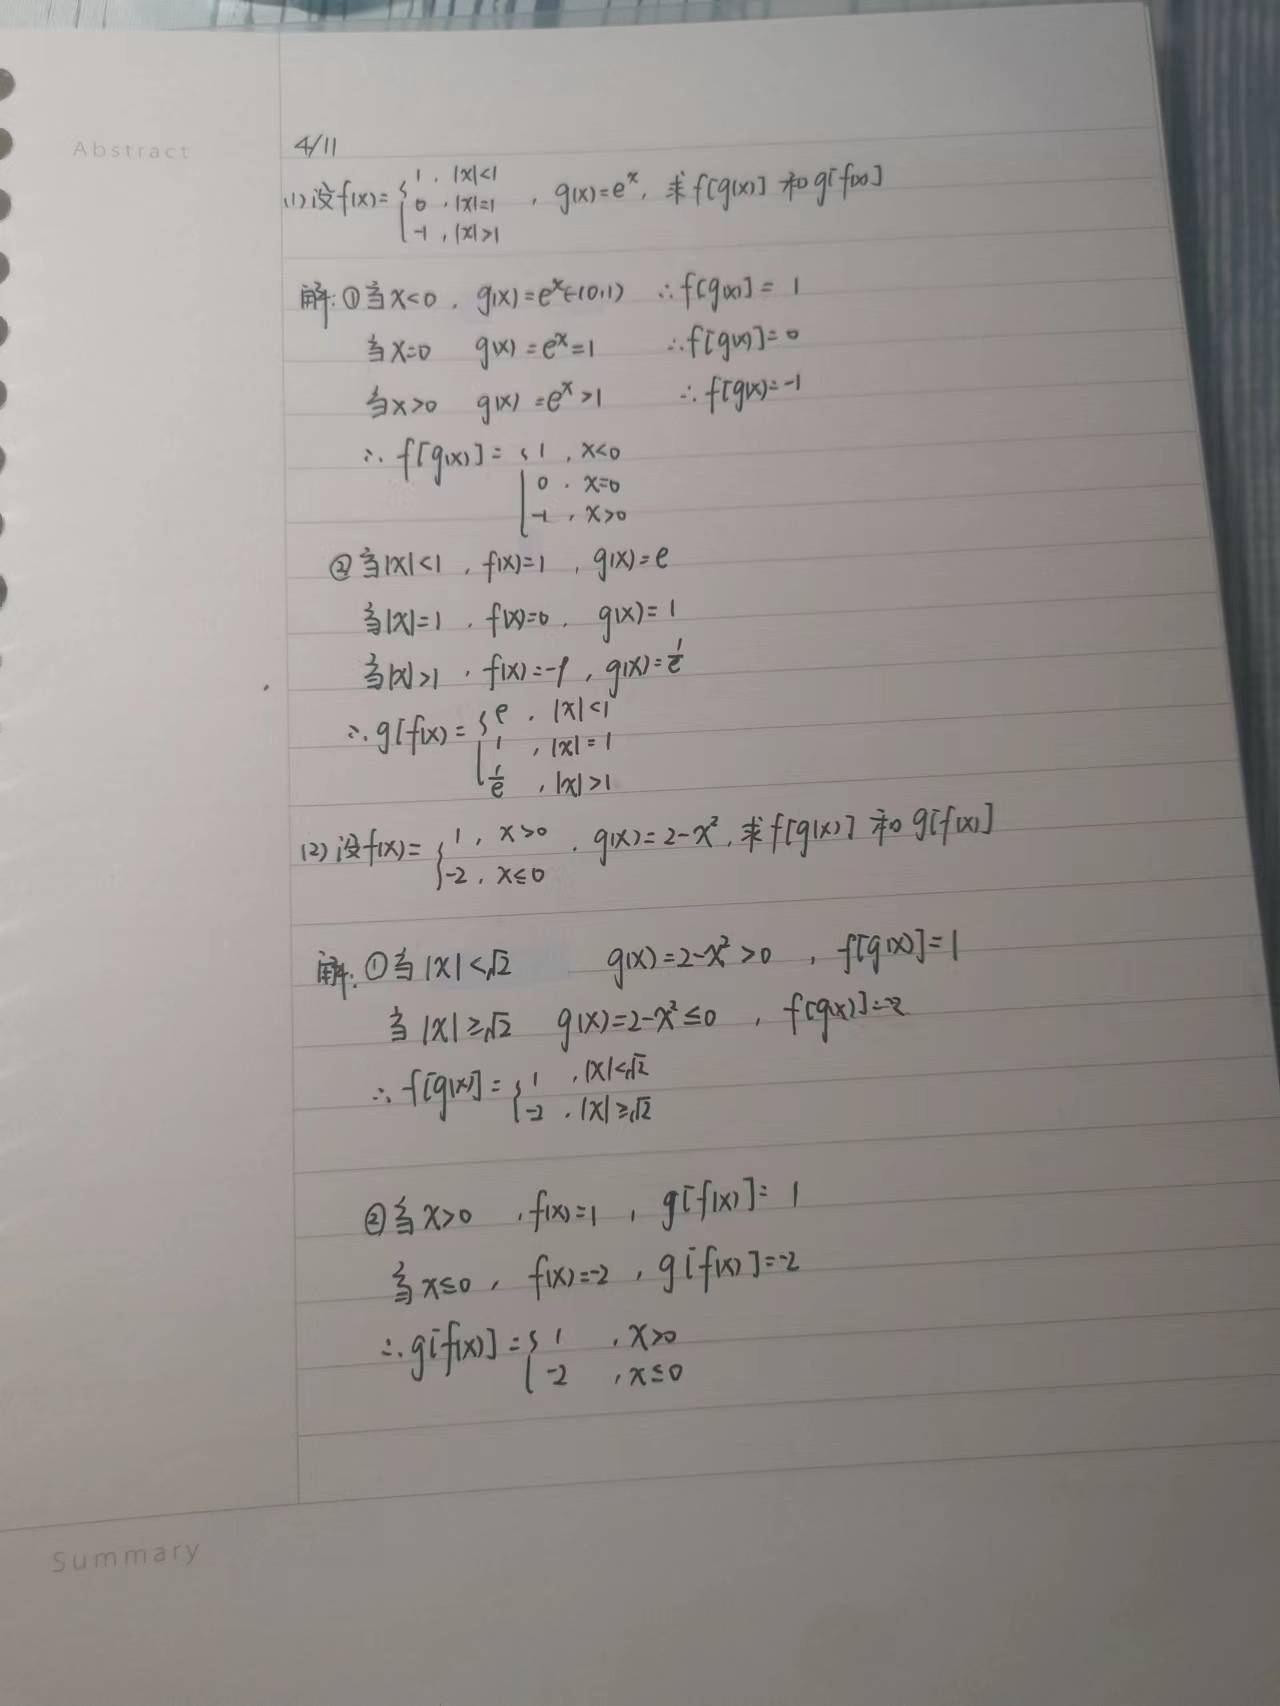 Abstract
4/11
(1)设f(x)={1,|x|<1
0,|x|=1 , g(x)=eˣ, 求f[g(x)]和g[f(x)]
-1,|x|>1
解:①当x<0, g(x)=eˣ∈(0,1) ∴f[g(x)]=1
当x=0 g(x)=eˣ=1 ∴f[g(x)]=0
当x>0 g(x)=eˣ>1 ∴f[g(x)=-1
∴f[g(x)]={1,x<0
0,x=0
-1,x>0
②当|x|<1,f(x)=1,g(x)=e
当|x|=1,f(x)=0,g(x)=1
当|x|>1,f(x)=-1,g(x)=1/e
∴g[f(x)={e,|x|<1
1,|x|=1
1/e,|x|>1
(2)设f(x)={1,x>0 , g(x)=2-x²,求f[g(x)]和g[f(x)]
-2,x≤0
解:①当|x|<√2 g(x)=2-x²>0,f[g(x)]=1
当|x|≥√2 g(x)=2-x²≤0,f[g(x)]=-2
∴f[g(x)]={1,|x|<√2
-2,|x|≥√2
②当x>0,f(x)=1,g[f(x)]=1
当x≤0,f(x)=-2,g[f(x)]=-2
∴g[f(x)]={1,x>0
-2,x≤0
Summary